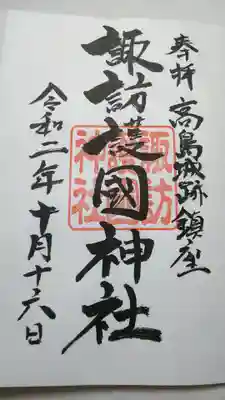 奉拝 高島城跡鎮座
諏訪護國神社
諏訪護國神社
令和二年十月十六日